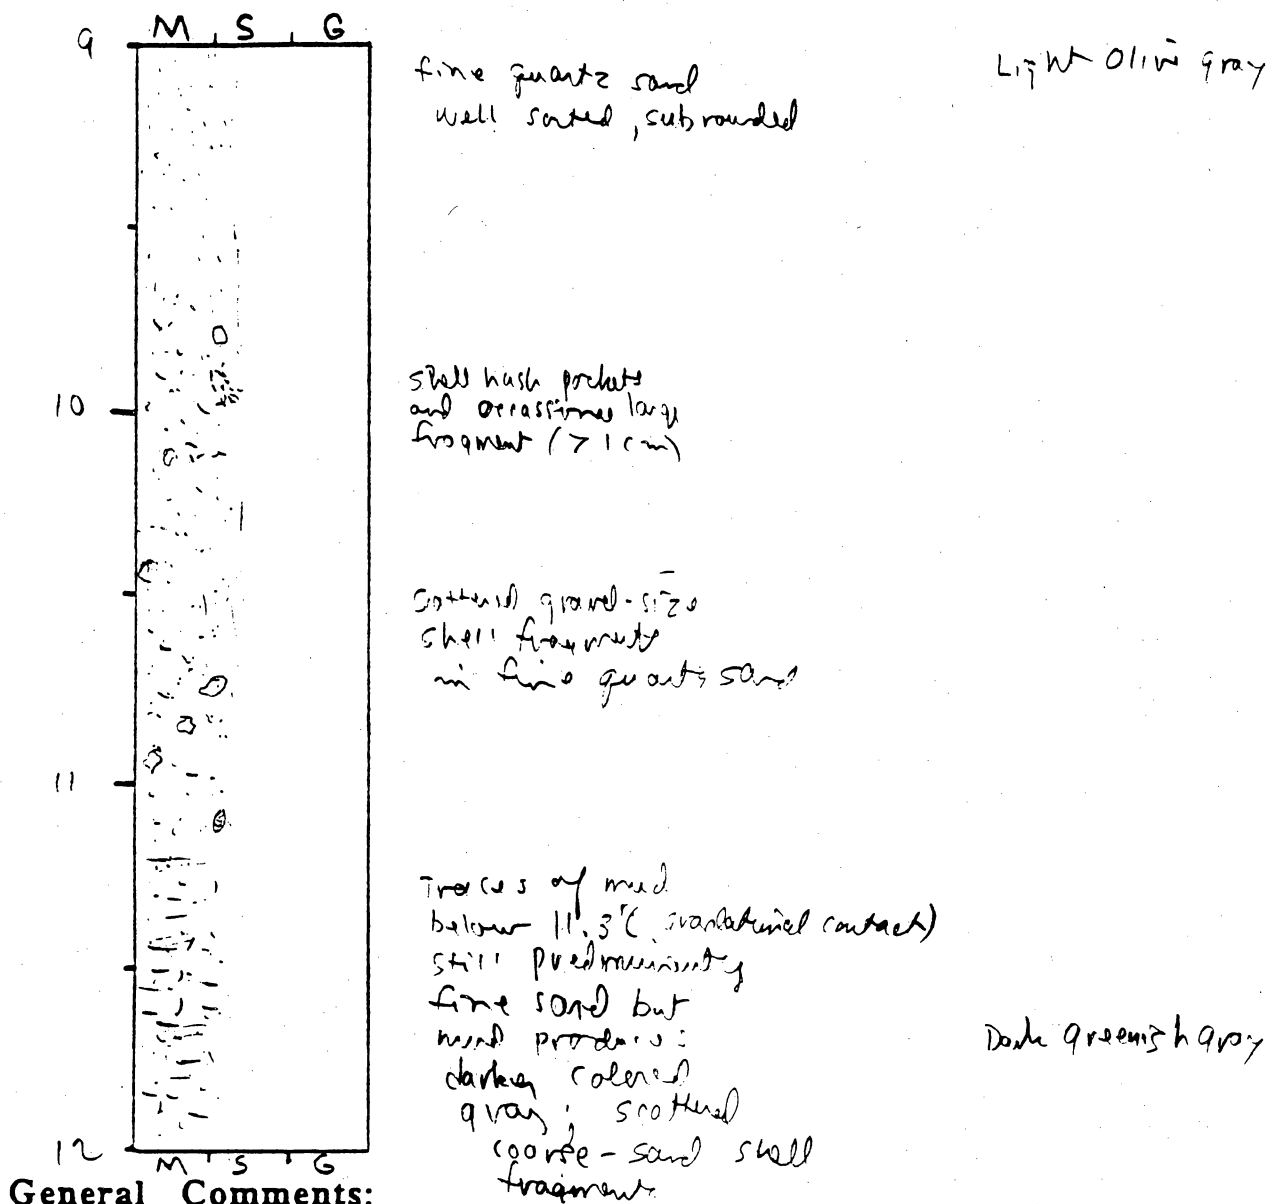 M S G
9
fine quartz sand
well sorted, subrounded
Light Olive gray
shell hash pockets
and occassional large
fragment (>1cm)
10
scattered gravel-size
shell fragments
in fine quartz sand
11
Traces of mud
below 11.3' (gradational contact)
still predominantly
fine sand but
mud produces
darker colored
gray; scattered
coarse-sand shell
fragments
Dark greenish gray
12
M S G
General Comments: